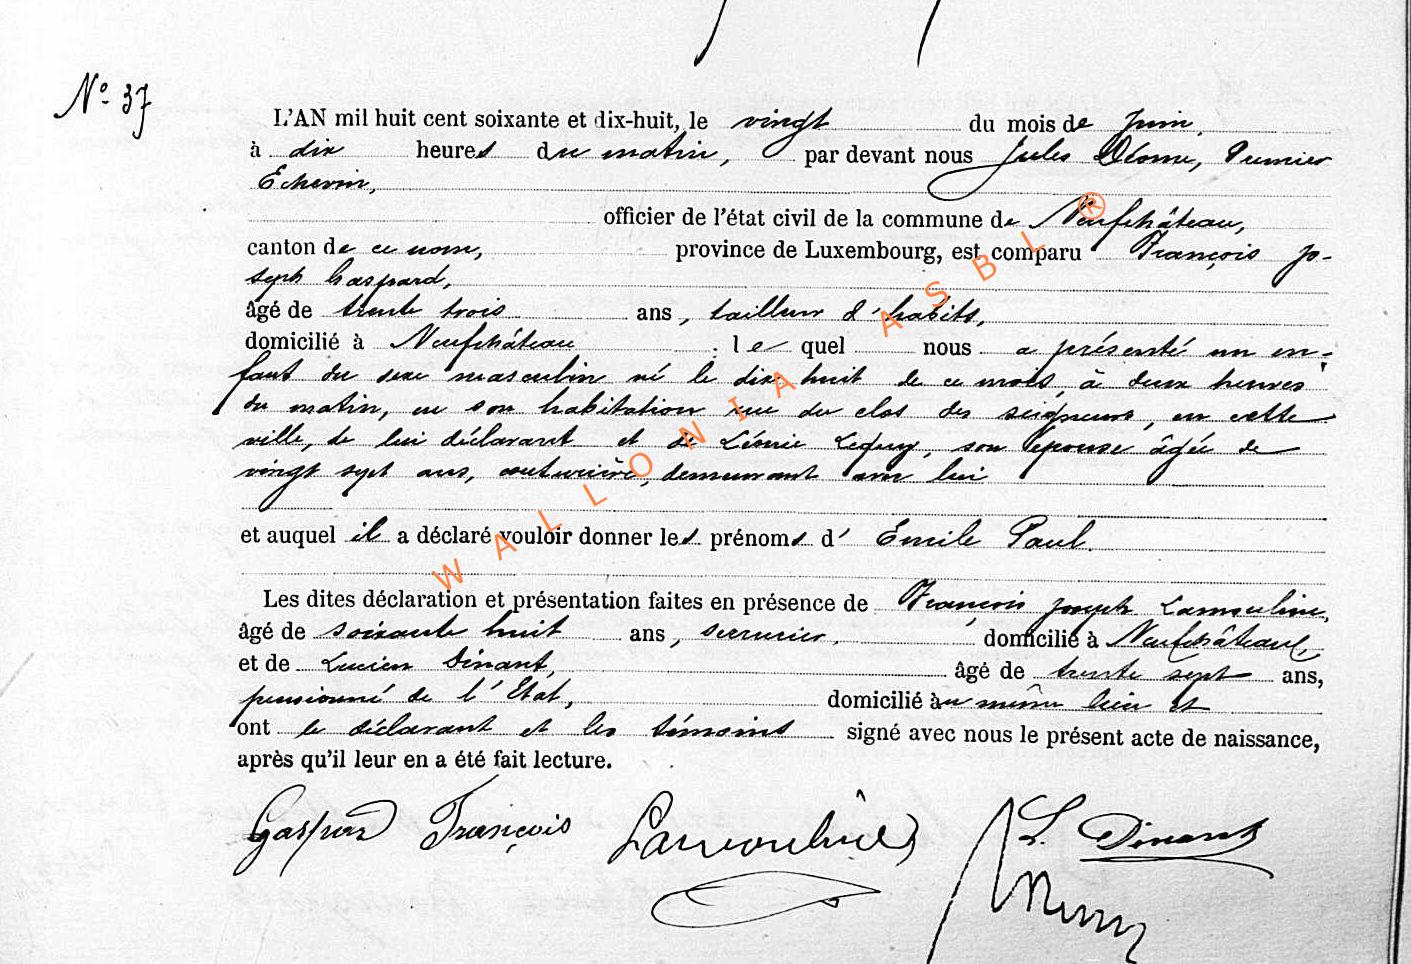 N° 37
L'AN mil huit cent soixante et dix-huit, le vingt du mois de Juin,
à dix heures du matin, par devant nous Jules Premier
Echevin,
officier de l'état civil de la commune de Neufchâteau,
canton de ce nom, province de Luxembourg, est comparu François Jo-
seph Gaspard,
âgé de trente trois ans, tailleur d'habits,
domicilié à Neufchâteau ; lequel nous a présenté un en-
fant du sexe masculin né le dix huit de ce mois, à deux heures
du matin, en son habitation rue du clos des seigneurs, en cette
ville, de lui déclarant et de Léonie son épouse âgée de
vingt sept ans, couturière, demeurant avec lui
et auquel il a déclaré vouloir donner les prénoms d' Emile Paul.
Les dites déclaration et présentation faites en présence de François Joseph
âgé de soixante huit ans, serrurier, domicilié à Neufchâteau,
et de Lucien Dinant, âgé de trente sept ans,
pensionné de l'Etat, domicilié au même lieu et
ont le déclarant et les témoins signé avec nous le présent acte de naissance,
après qu'il leur en a été fait lecture.
Gaspard François L. Dinant
WALLONIA ASBL ®